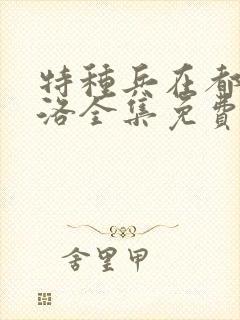 特种兵在都
洛全集免费
舍里甲